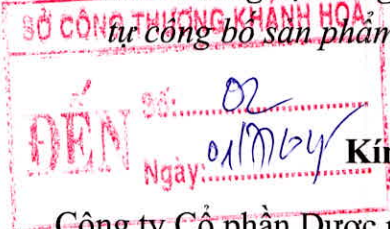 SỞ CÔNG THƯƠNG KHÁNH HÒA
tự công bố sản phẩm
ĐẾN
Số: 02
Ngày:
Kín
Công ty Cổ phần Dược